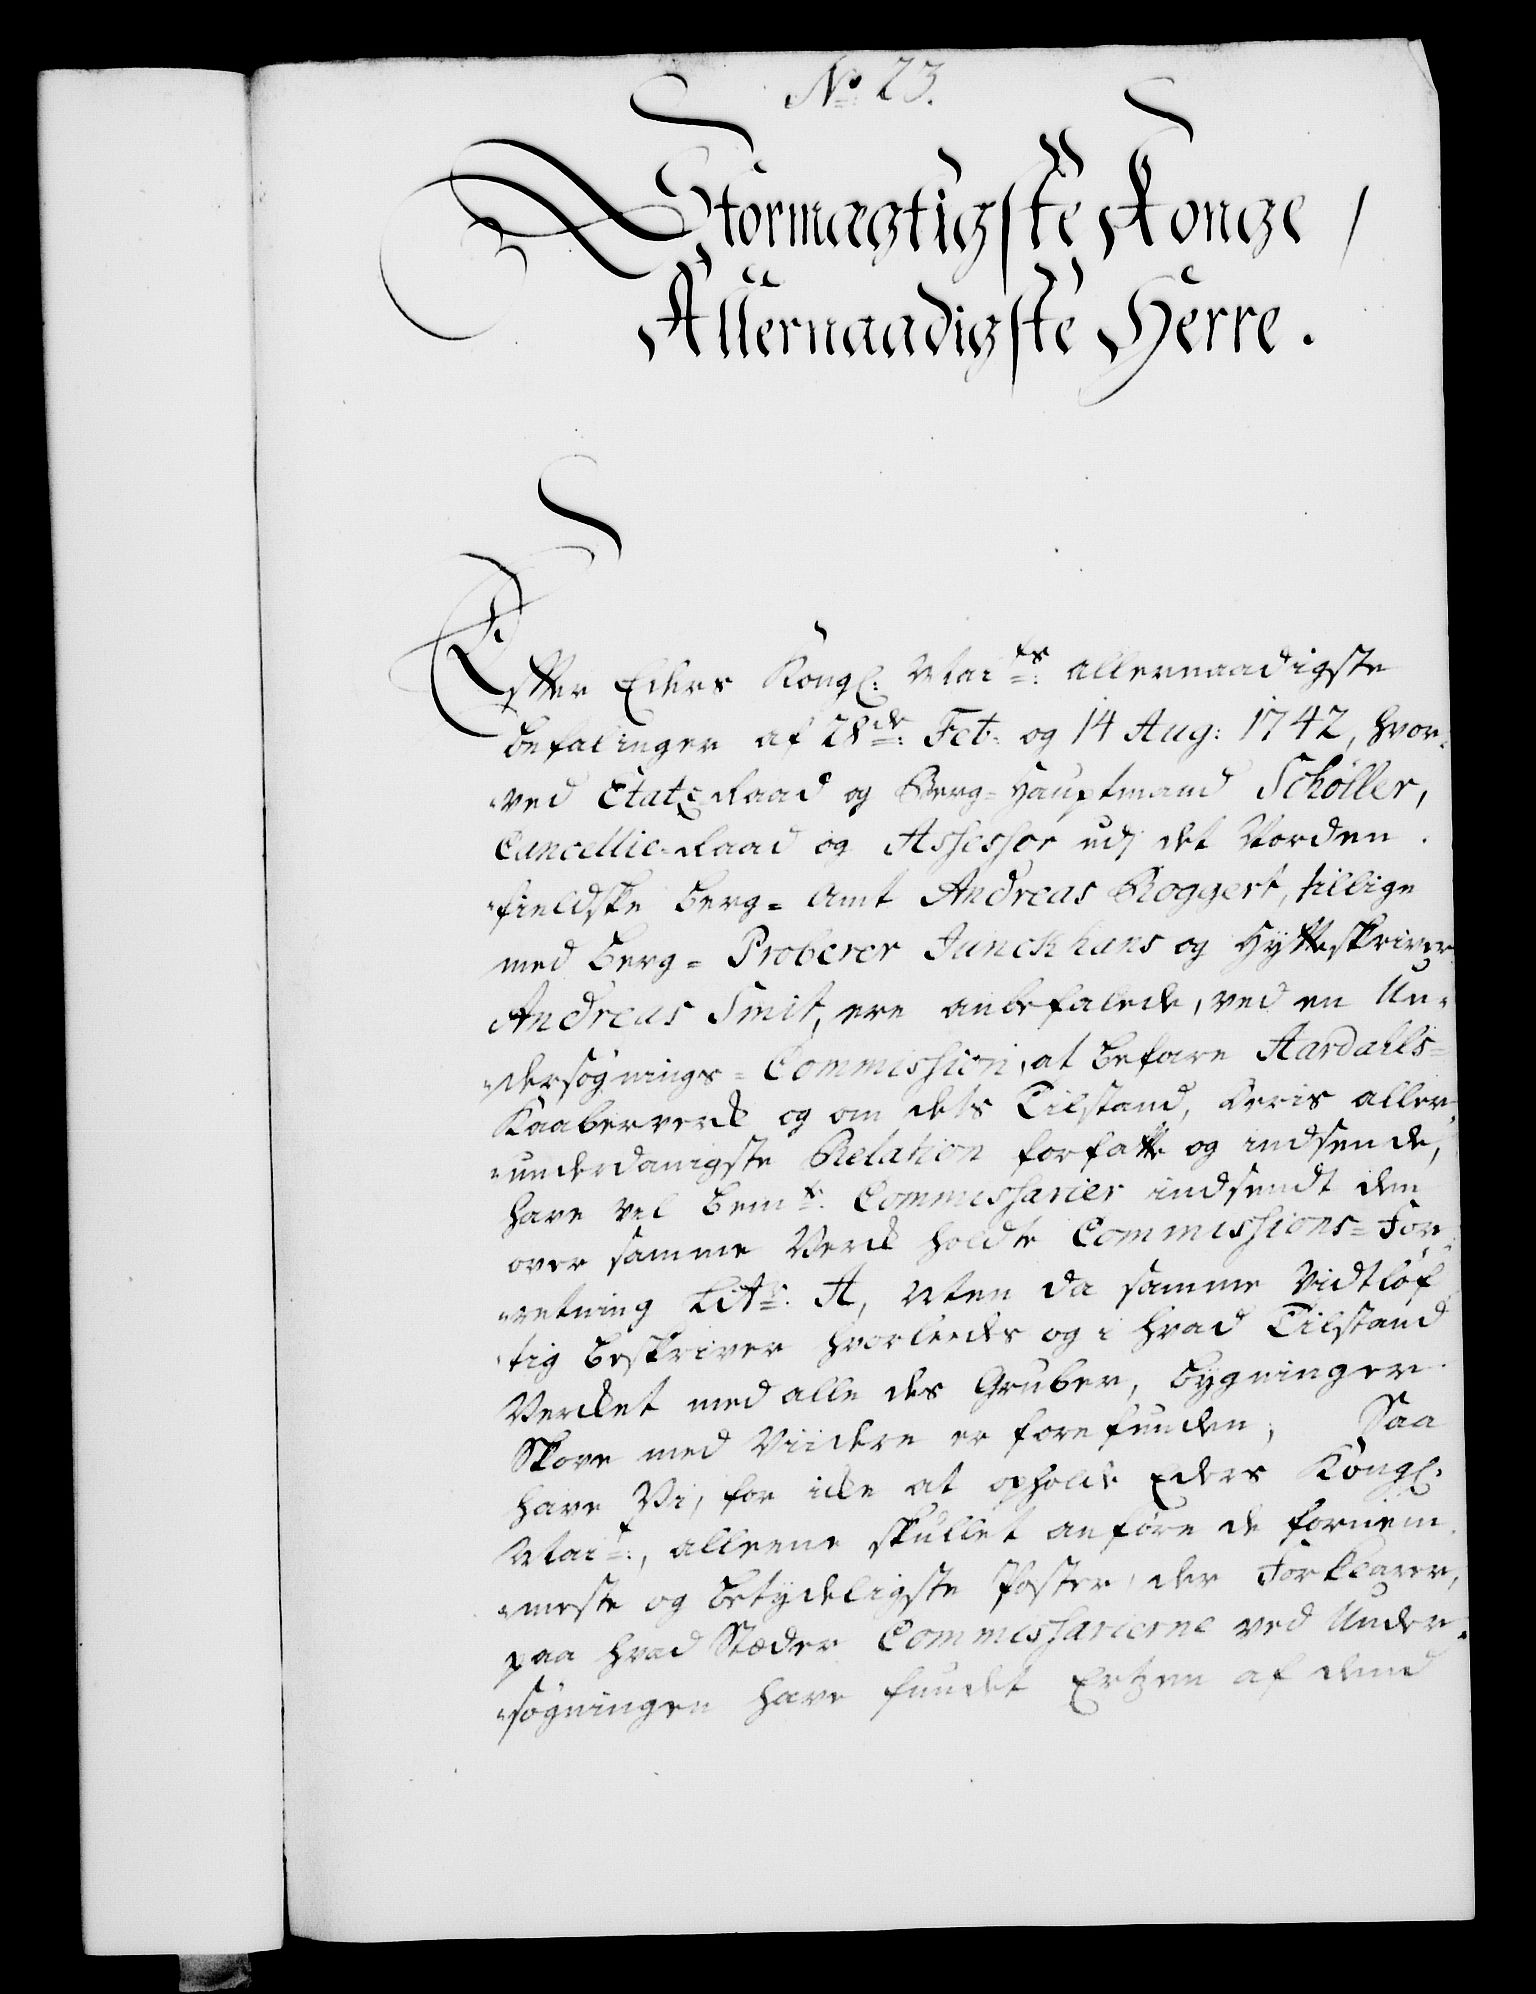 No. 23.
Stormægtigste Konge /
Allernaadigste Herre.
Efter Eders Kongl: Maits: allernaadigste
befalinger af 28de: Feb: og 14 Aug: 1742, hvor-
ved Etatz-Raad og Berg-Hauptmand Schøller,
Cancellie-Raad og Assessor udj det Norden-
fieldske Berg-Amt Andreas Roggert, tillige
med Berg-Proberer Junckhans og Hytteskriver
Andreas Smit, ere anbefalede, ved en Un-
dersøgnings-Commission, at befare Aardalls-
Kaaberverk og om dets Tilstand, deris aller-
underdanigste Relation forfatte og indsende,
have vel bemte: Commissarier indsendt den
over samme Verk holdte Commissions-For-
retning Litr: A, Men da samme Vidtløf-
tig beskriver hvorledes og i hvad Tilstand
Verket med alle des Gruber, bygninger
Skove med Viidere er forefunden, Saa
have Vi, for ikke at opholde Eders Kongl:
Mait:, alleene skullet anføre de fornem-
meste og betydeligste Poster, der Forklarer,
paa hvad Stæder Commissarierne ved Under-
søgningen have fundet Ertzen af dend